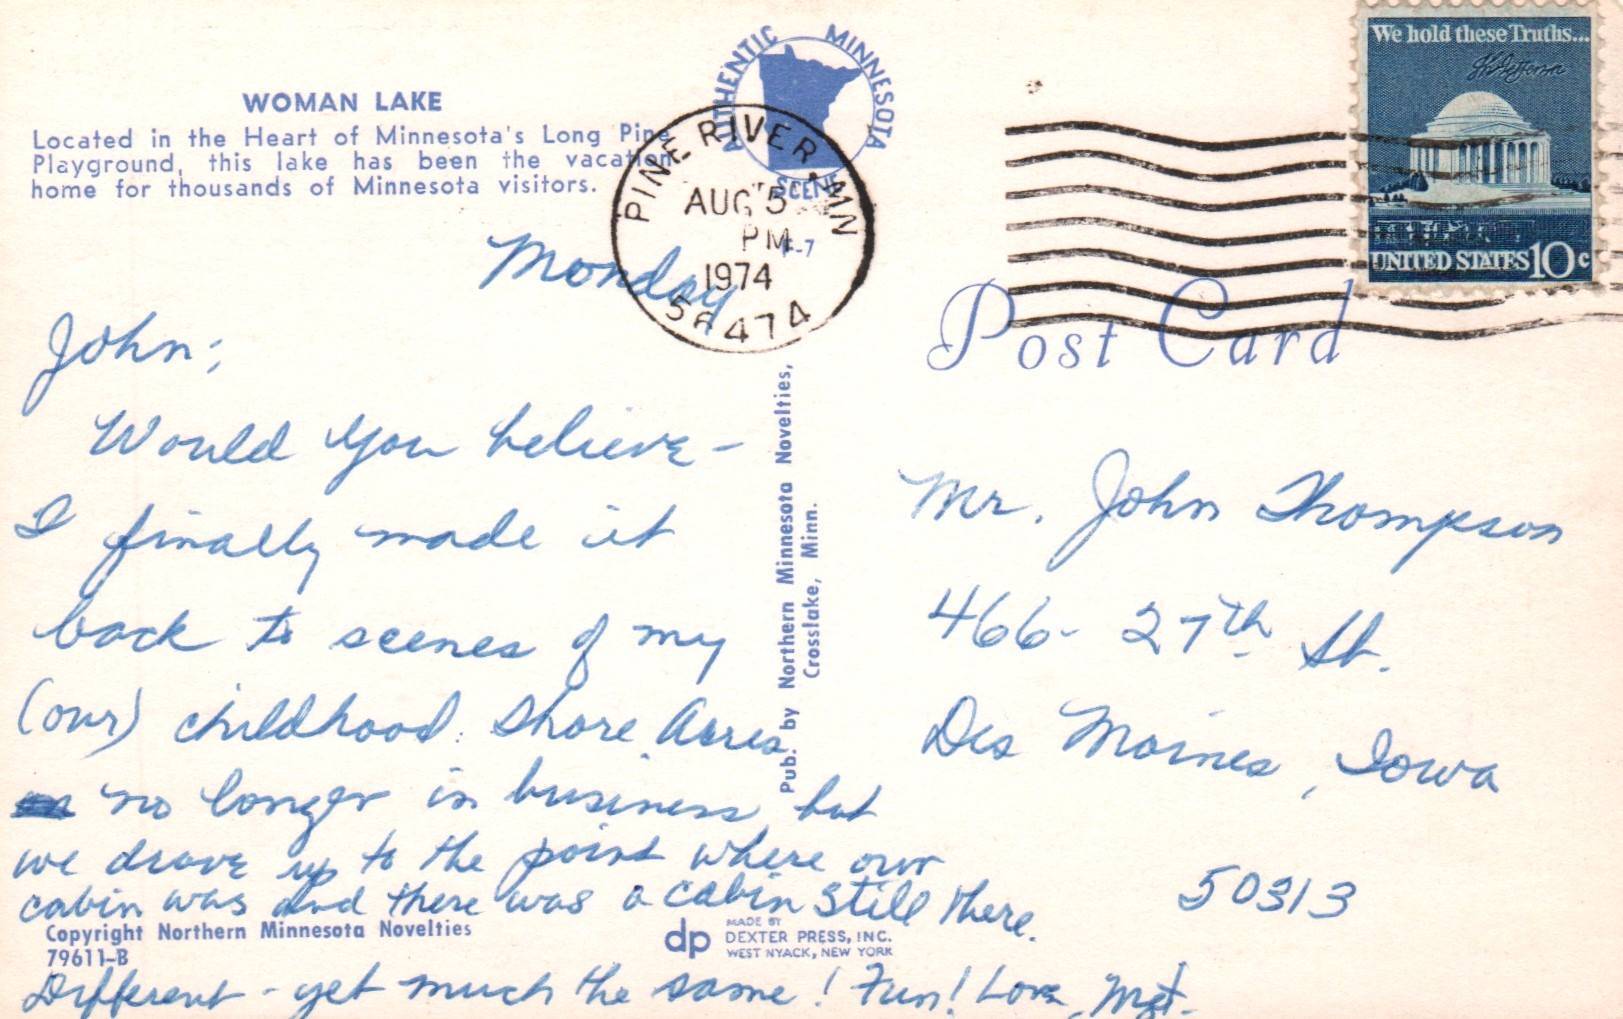 WOMAN LAKE
Located in the Heart of Minnesota's Long Pine
Playground, this lake has been the vacation
home for thousands of Minnesota visitors.
AUTHENTIC MINNESOTA
SCENE
PINE RIVER, MN
AUG 5
PM
1974
56474
F-7
We hold these Truths...
Th Jefferson
UNITED STATES 10c
Post Card
Monday
John;
Would you believe -
I finally made it
back to scenes of my
(our) childhood. Shore Acres
no longer in business but
we drove up to the point where our
cabin was and there was a cabin still there.
Different - yet much the same! Fun! Love, Mgt.
Pub. by Northern Minnesota Novelties,
Crosslake, Minn.
Mr. John Thompson
466- 27th St.
Des Moines, Iowa
50313
Copyright Northern Minnesota Novelties
79611-B
dp
MADE BY
DEXTER PRESS, INC.
WEST NYACK, NEW YORK